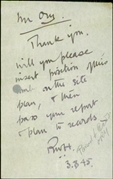 Mr Orr.
Thank you.
will you please
insert position of this
on the site
plan, & then
pass your report
& plan to records
5.8.45.